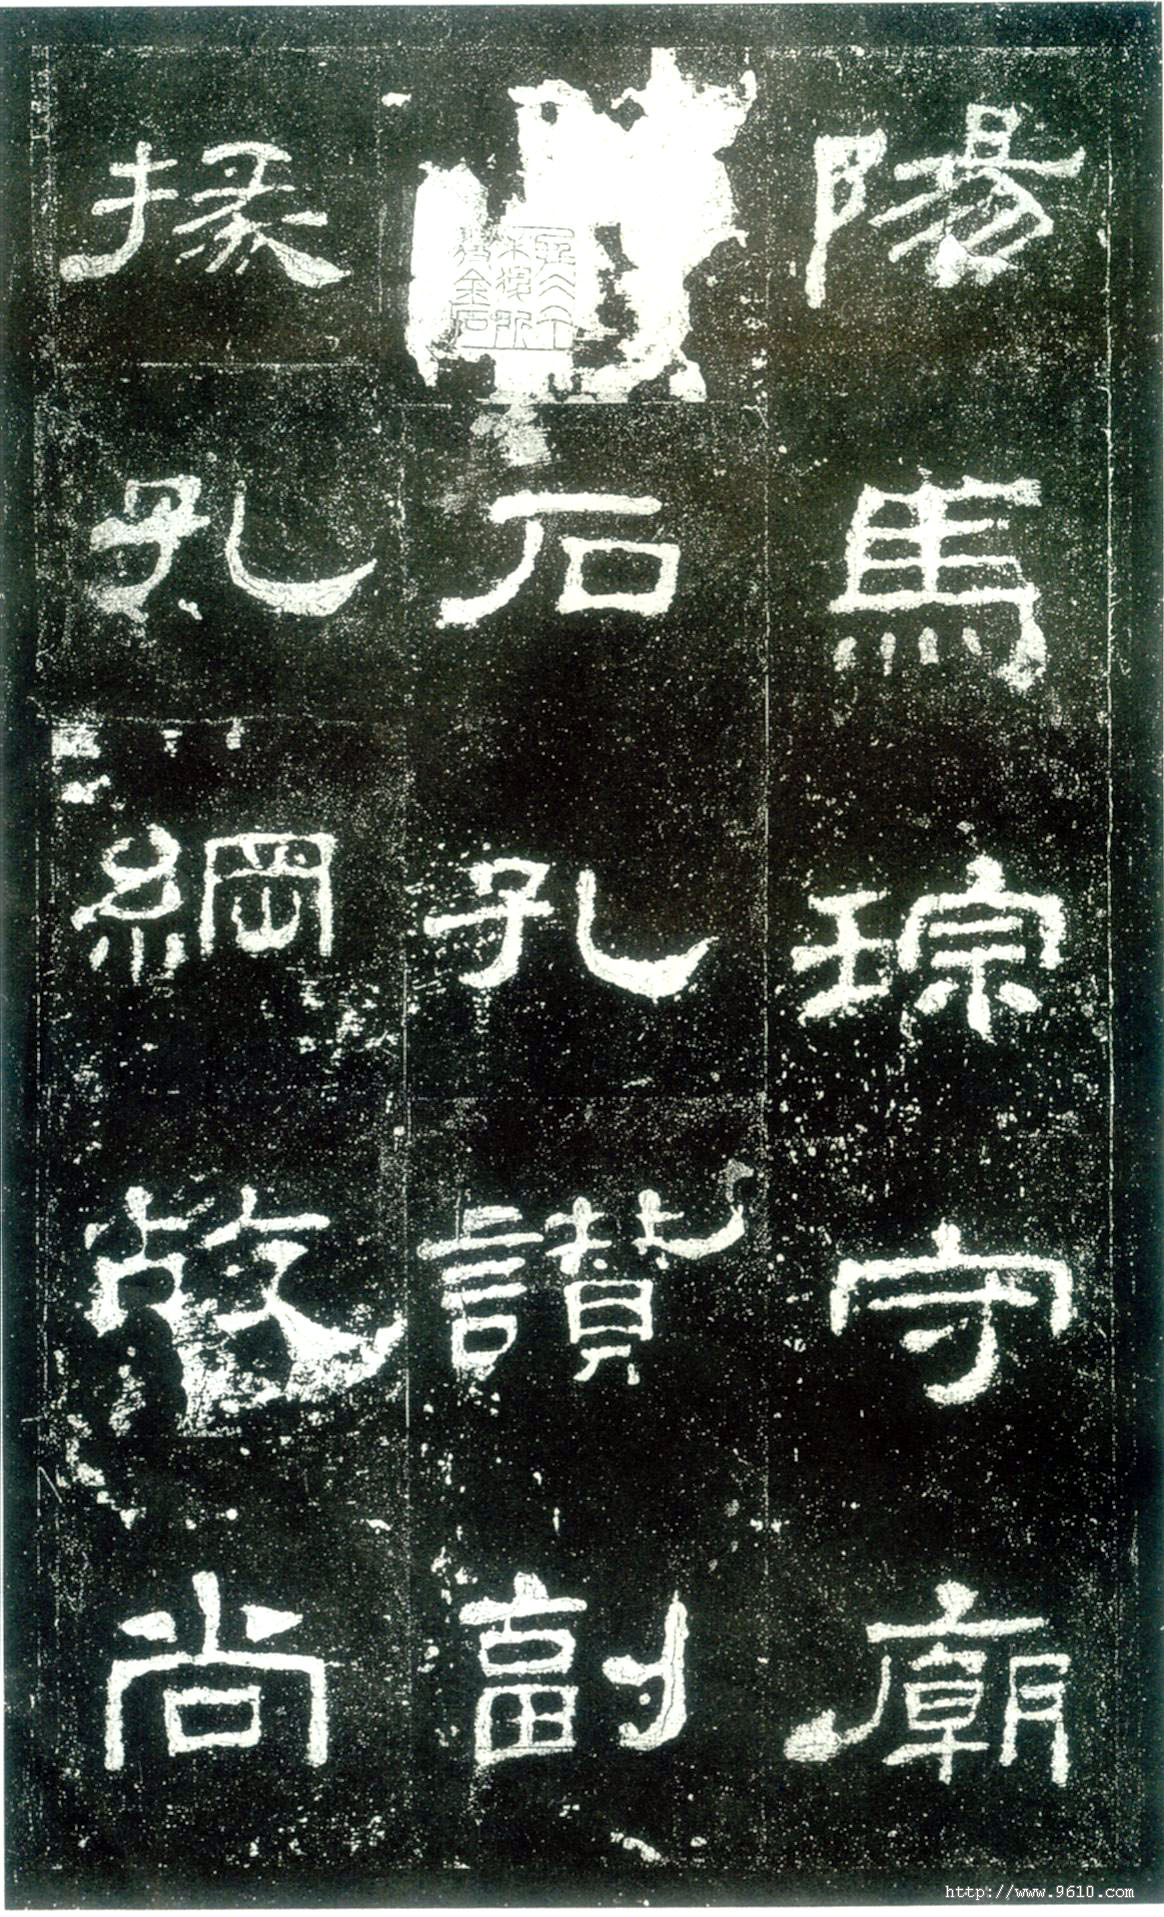 陽馬琮守廟
石孔讃副
掾孔綱故尚
http://www.9610.com